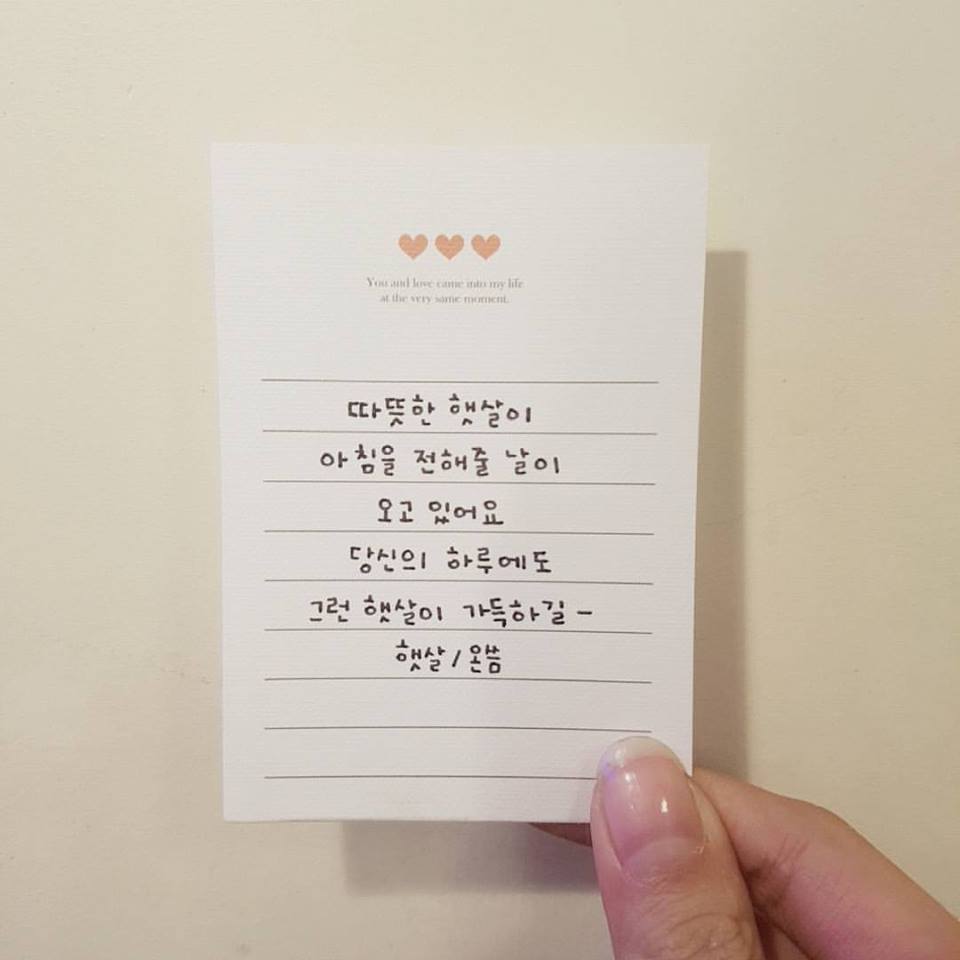 You and love came into my life
at the very same moment.
따뜻한 햇살이
아침을 전해줄 날이
오고 있어요
당신의 하루에도
그런 햇살이 가득하길-
햇살/온씀